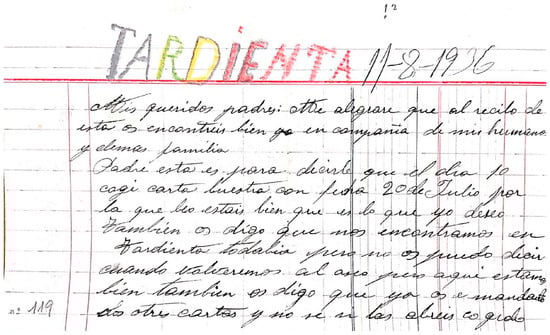 1º
TARDIENTA 11-8-1936
Mis queridos padres: Me alegrare que al recibo de
esta os encontreis bien yo en compañia de mis hermano
y demas familia
Padre esta es para decirle que el dia 10
cogi carta buestra con fecha 20 de Julio por
la que beo estais bien que es lo que yo deseo
tambien os digo que nos encontramos en
Tardienta todabia pero no os puedo dicir
cuando valveremos al pero aqui estamos
bien tambien os digo que ya os e mandado
dos o tres cartas y no se si las abreis cogido
nº 119